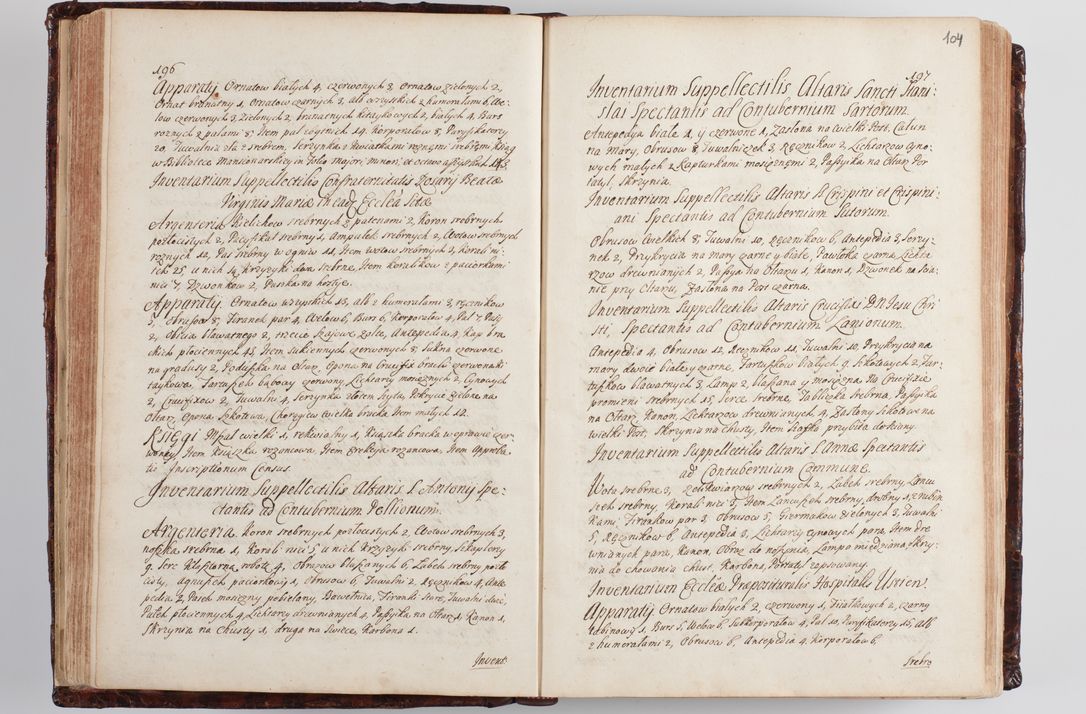 196
Apparaty Ornatow białych 4, czerwonych 3, ornatow zielonych 2,
Ornat brunatny 1, Ornatow czarnych 3, alb wszystkich z humeralami 6, We-
low czerwonych 3, Zielonych 2, brunatnych kitaykowych 2, białych 4, Burs
roznych z palami 8, Item pal roznych 14, Korporałow 8, Puryfikaterzy
20, Tuwalnia z srebrem, Serzynka z kwiatkami roznemi srebrnemi Xiąg
w Bibliotece Mansionarskiey in folio major: minori, et octavo
Inventarium Suppellectilis Confraternitatis Rosarij Beatæ
Virginis Mariæ in ead Ecclâ Sitæ
Argenteria Kielichow srebrnych z patenami 2, Koron srebrnych
pozłocistych 2, Pacyfikał srebrny 1, Ampułek srebrnych 2, Wotow srebrnych
roznych 12, Pas srebrny w ogniw 11, Item wotow srebrnych 2, Korali ni-
tek 25, u nich 14 krzyzyki dwa srebrne, Item koralikow z paciorkami
nici 7, Dzwonkow 2, Puszka na hostye.
Apparaty Ornatow wszystkich 13, alb z humeralami 3, ręcznikow
5, obrusow 8, Firanek par 4, Welow 6, Burs 6, Korporałow 4, Pal 7,
2, Obicia bławatnego 2, trzecie szajowe zołte, Antepedia 4, Kap bra-
ckich płociennych 41 Item sukiennych czerwonych 8, Sukna czerwone
na gradusy 2, Poduszka na Ołtarz, Opona na Crucifix bracki czerwona ki-
taykowa, Fartuszek czerwony, Lichtarzy mosięznych 2, Cynowych
2, Crucifixow 2, Tuwalni 4, Serzynka złotem szyta, Pokrycie zielone na
Ołtarz, Opona Szkotowa, Choręgiew wielka bracka Item małych 12.
Księgi Mszał wielki 1, rekwialny 1, Książka bracka w oprawie czer-
woney, Item książka rozancowa, Item erekcja rozancowa, Item Approba-
tio Inscriptionum Census.
Inventarium Suppellectilis Altaris S. Antonij Spe-
ctantis ad Contubernium Pellionum.
Argenteria Koron srebrnych pozłocistych 2, Wotow srebrnych 3,
nozka srebrna 1, Korali nici 5 u nich Krzyzyk srebrny, Szkaplerzy
9, Serc robotą 4, Obrazow blaszanych 6, Łabek srebrny pozło-
cisty, agnuszek paciorkowy 1, Obrusow 6, Tuwalni 2, Ręcznikow 4, Ante-
pedia 2, Pasek mosięzny pobielany, Bawełnica, Firanki stare, Tuwalni dwie,
Pałek płociennych 4, Lichtarzy drewnianych 4, Passyika na Ołtarz 1, Kanon 1,
Skrzynia na Chusty 1, druga na Swiece, Karbona 1.
Invent:
104
197
Inventarium Suppellectilis, Altaris Sancti Stani-
slai Spectantis ad Contubernium Sartorum.
Antepedya biała 1, y czerwone 1, Zasłona na wielki Post, Całun
na Mary, Obrusow 8, Tuwalniczek 3, Ręcznikow 2, Lichtarzow Cyno-
wych małych z Kapturkami mosięznemi 2, Passyika na Ołtarz Por-
tatyl, Skrzynia.
Inventarium Suppellectilis Altaris SS. Crispini et Crispini-
ani Spectantis ad Contubernium Sutorum.
Obrusow wielkich 8, Tuwalni 10, Ręcznikow 6, Antepedia 3, Serzy-
nek 2, Przykrycia na Mary czarne y białe, Pawłoka czarna Lichta-
rzow drewnianych 2, Passyia na Ołtarzu 1, Kanon 1, Dzwonek na Scia-
nie przy Ołtarzu, Zasłona na Post czarna.
Inventarium Suppellectilis Altaris Crucifixi D. N. Jesu Chri-
sti, Spectantis ad Contubernium Lanionum.
Antepedia 4, Obrusow 12, Recznikow 11, Tuwalni 10, Przykrycia na
mary dwoie białe y czarne, Fartuszkow białych 9, Szkotowych 2, Far-
tuszkow bławatnych 3, Lamp 2 blaszana y mosięzna, Na Crucifixie
promieni srebrnych 15, Serce srebrne, Tabliczka srebrna, Passyika
na Ołtarz, Kanon, Lichtarzow drewnianych 4, Zasłony Szkotowe na
wielki Post, Skrzynia na chusty, Item Szafka przybita do sciany.
Inventarium Suppellectilis Altaris S. Annæ Spectantis
ad Contubernium Commune.
Wota srebrne 3, Relikwiarzow srebrnych 2, Łabek srebrny, Łancu-
szek srebrny, Korali nici 3, Item Łancuszek srebrny drobny z rubin-
kami, Firankow par 3, Obrusow 5, Giermakow Zielonych 3, Tuwalni
5, Ręcznikow 6, Antepedia 3, Lichtarzy cynowych para, Item dre-
wnianych para, Kanon, Obraz do noszenia, Lampa miedziana, Skrzy-
nia do chowania chust, Karbona, Portatyl zepsowany.
Inventarium Ecclæ Præpositurulis Hospitalis Uscien:
Apparaty Ornatow białych 2, czerwony 1, Fiiałkowych 2, czarny
tabinowy 1, Burs 5, Welow 6, Subkorporałow 4, Pal 10, Puryfikaterzy 15, alb
z humerałami 2, Obrusow 6, Antepedia 4, Korporałow 6,
Srebro